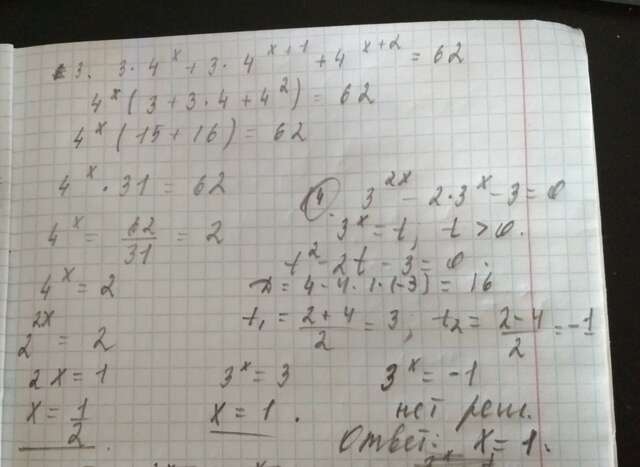 3. 3·4^x + 3·4^(x+1) + 4^(x+2) = 62
4^x (3 + 3·4 + 4^2) = 62
4^x (15 + 16) = 62
4^x · 31 = 62
4^x = 62/31 = 2
4^x = 2
2^(2x) = 2
2x = 1
x = 1/2
4. 3^(2x) - 2·3^x - 3 = 0
3^x = t, t > 0.
t^2 - 2t - 3 = 0.
D = 4 - 4·1·(-3) = 16
t₁ = (2+4)/2 = 3; t₂ = (2-4)/2 = -1
3^x = 3 3^x = -1
x = 1. нет реш.
Ответ: x = 1.